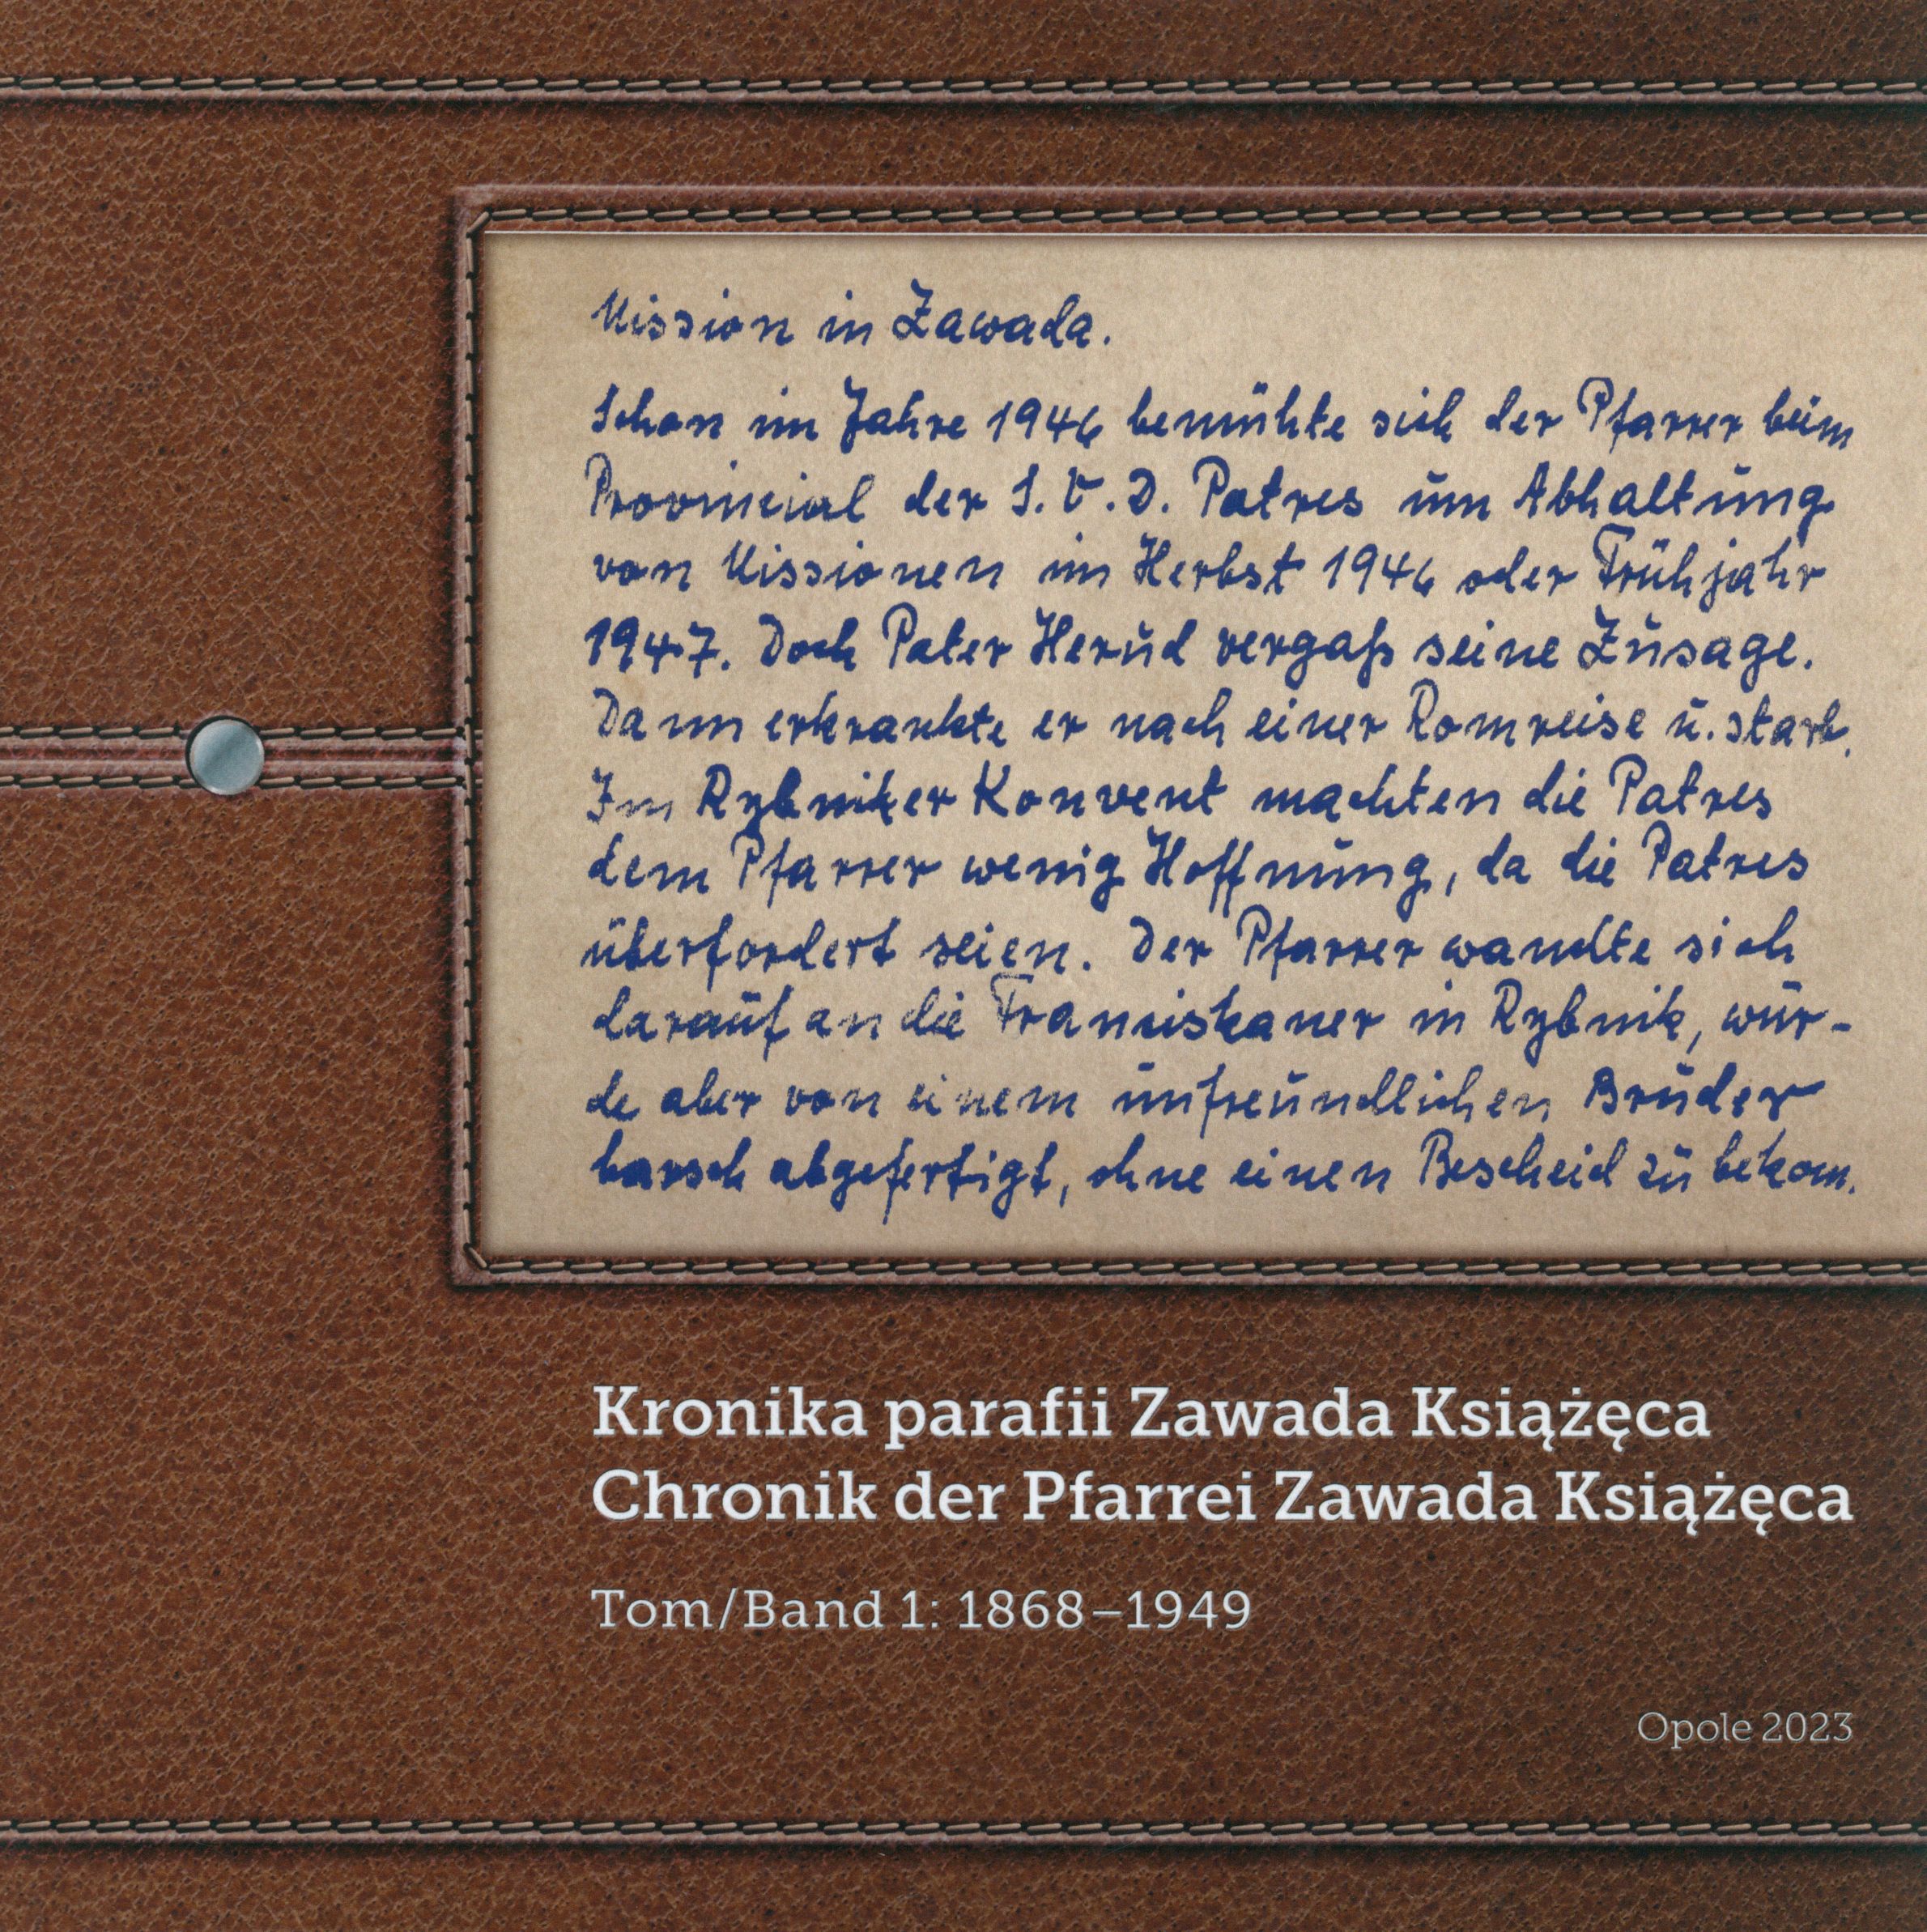 Mission in Zawada.
Schon im Jahre 1946 bemühte sich der Pfarrer beim
Provincial der S.V.D. Patres um Abhaltung
von Missionen im Herbst 1946 oder Frühjahr
1947. Doch Pater Herud vergaß seine Zusage.
Dann erkrankte er nach einer Romreise u. starb.
Im Rybniker Konvent machten die Patres
dem Pfarrer wenig Hoffnung, da die Patres
überfordert seien. Der Pfarrer wandte sich
darauf an die Franziskaner in Rybnik, wur-
de aber von einem unfreundlichen Bruder
barsch abgefertigt, ohne einen Bescheid zu bekom.
Kronika parafii Zawada Książęca
Chronik der Pfarrei Zawada Książęca
Tom/Band 1: 1868–1949
Opole 2023